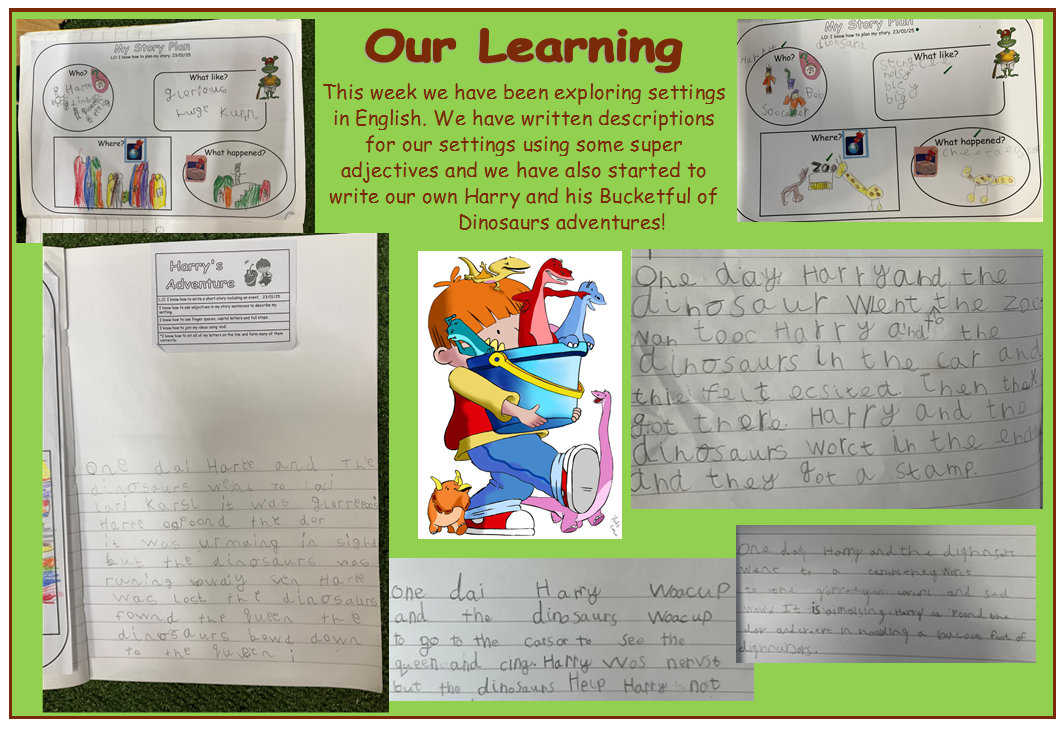 Our Learning
This week we have been exploring settings
in English. We have written descriptions
for our settings using some super
adjectives and we have also started to
write our own Harry and his Bucketful of
Dinosaurs adventures!
My Story Plan
LO: I know how to plan my story. 23/01/25
Who?
What like?
glorious
huge
Where?
What happened?
My Story Plan
LO: I know how to plan my story. 23/01/25
Who?
Bob
What like?
noisy
big
Where?
zoo
What happened?
Harry's
Adventure
L.O. I know how to write a short story including an event. 23/01/25
I know how to use adjectives in my story sentences to describe my
setting.
I know how to use finger spaces, capital letters and full stops.
I know how to join my ideas using 'and'.
*I know how to sit all of my letters on the line and form many of them
correctly.
One dai Harre and The
dinosaurs went to a
Karsl it was
Harre the dor
it was in sight
but the dinosaurs was
runing Harre
was lost the dinosaurs
fownd the queen the
dinosaurs bowd down
to the queen
One day Harry and the
dinosaur went to the zoo
nan tooc Harry and the
dinosaurs in the car and
felt ecsited. Then they
got there. Harry and the
dinosaurs worct in the end
and they got a stamp.
one dai Harry Woacup
and the dinosaurs Woacup
to go to the carsor to see the
queen and cing. Harry was nervst
but the dinosaurs Help Harry not
One day Harry and the
went to a
and
It is Harry
dor and in a of